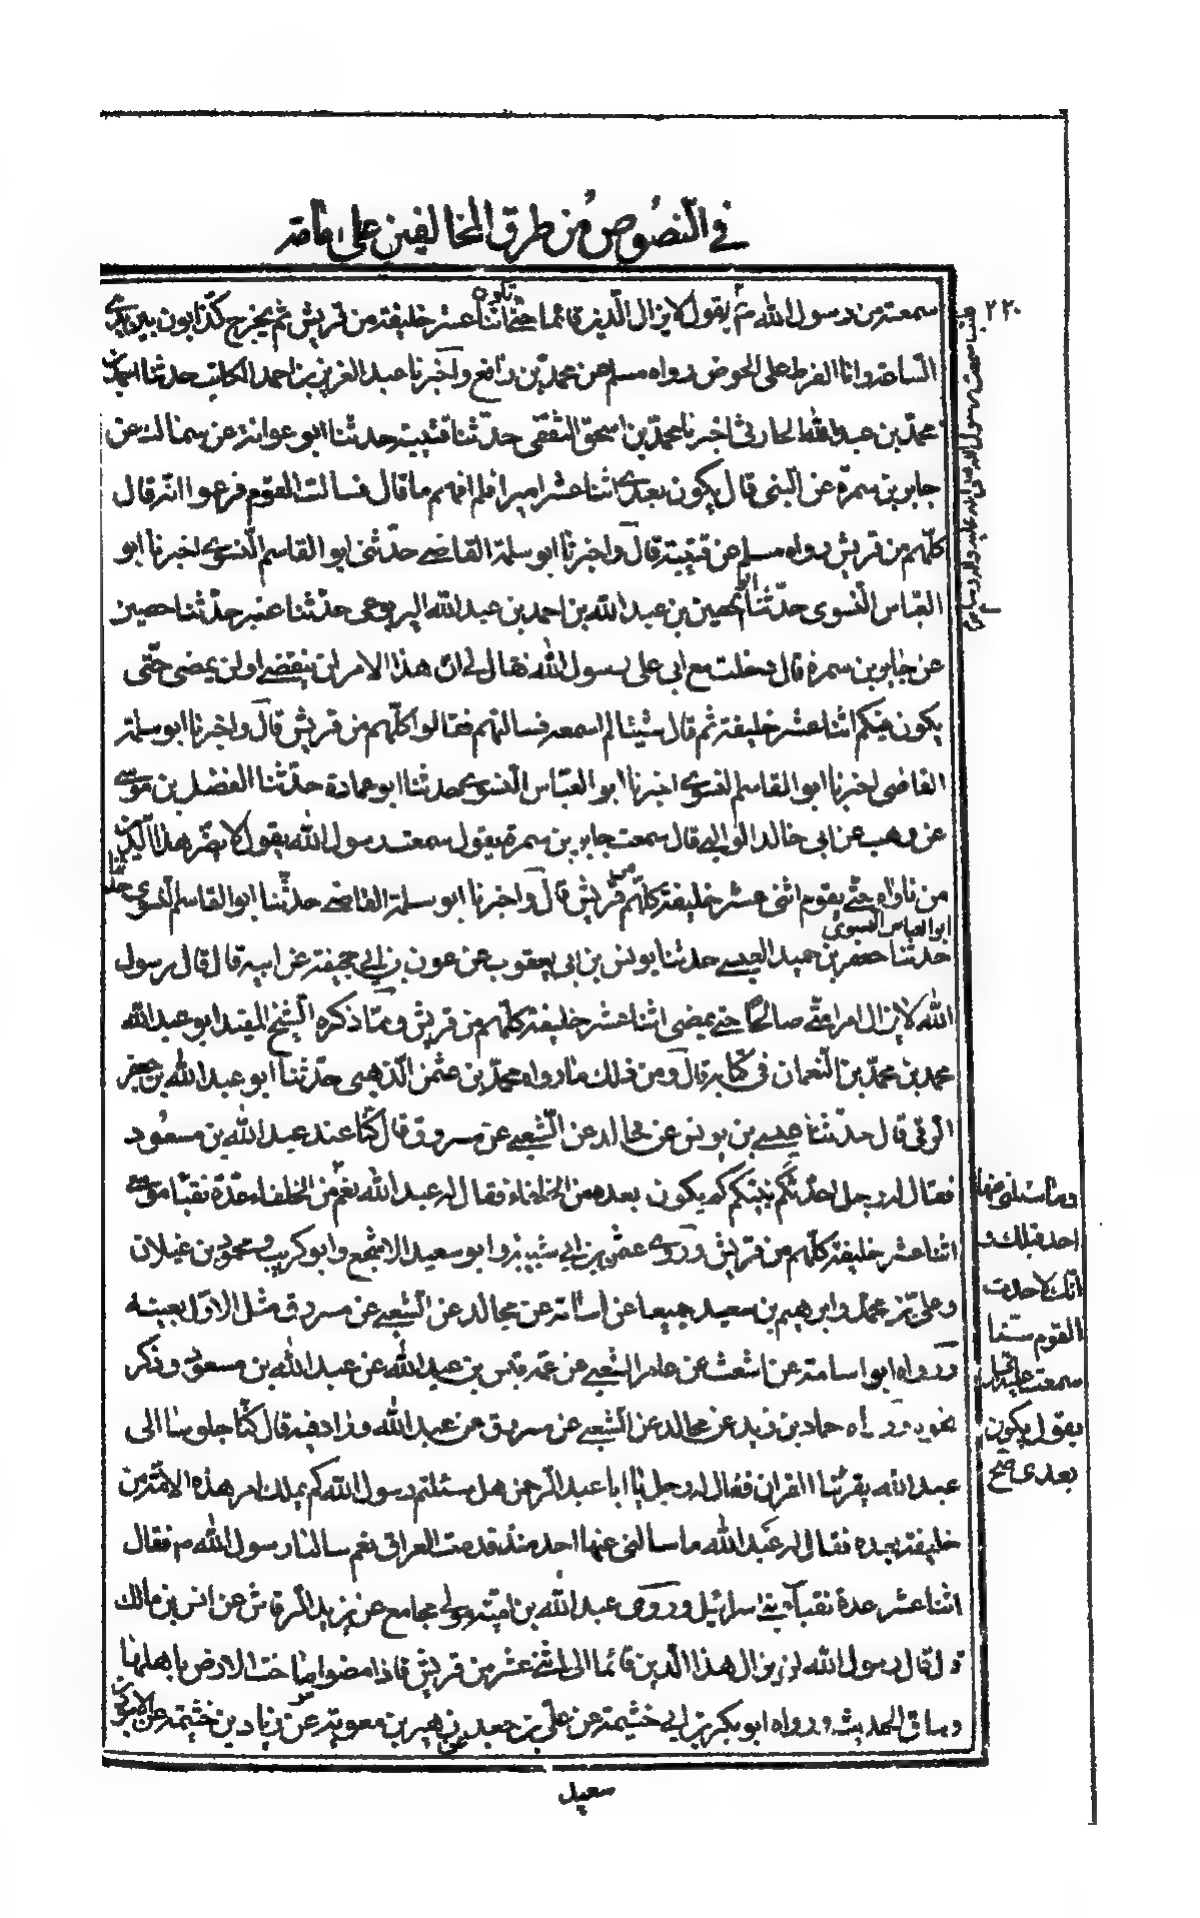 في النصوص من طرق المخالفين على امامته
٢٢٠
سمعته من رسول الله م يقول لا يزال الدين قائما حتى اثنا عشر خليفة من قريش ثم يخرج كذابون بين يدي
الساعة وانا الفرط على الحوض رواه مسلم عن محمد بن رافع واخبرنا عبد العزيز بن احمد الكاتب حدثنا احمد بن
محمد بن عبد الله الحارثي اخبرنا محمد بن اسحق الثقفي حدثنا قتيبة حدثنا ابو عوانة عن سماك عن
جابر بن سمرة عن النبي قال يكون بعدي اثنا عشر اميرا فلم افهم ما قال فسالت القوم فزعموا انه قال
كلهم من قريش رواه مسلم عن قتيبة قال واخبرنا ابو سلمة القاضي حدثني ابو القاسم النسوي اخبرنا ابو
العباس النسوي حدثنا ابو حصين بن عبد الله بن احمد بن عبد الله اليربوعي حدثنا عنبر حدثنا حصين
عن جابر بن سمرة قال دخلت مع ابي على رسول الله فقال لي ان هذا الامر لن ينقضي اولن يمضي حتى
يكون فيكم اثنا عشر خليفة ثم قال شيئا لم اسمعه فسالتهم فقالوا كلهم من قريش قال واخبرنا ابو سلمة
القاضي اخبرنا ابو القاسم النسوي اخبرنا ابو العباس النسوي حدثنا ابو عمادة حدثنا الفضل بن موسى
عن وهب عن ابي خالد الوالبي قال سمعت جابر بن سمرة يقول سمعت رسول الله يقول لا يضر هذا الدين
من ناواه حتى يقوم اثنى عشر خليفة كلهم من قريش قال واخبرنا ابو سلمة القاضي حدثنا ابو القاسم النسوي حدثنا
ابو العباس النسوي
حدثنا جعفر بن حميد العبسي حدثنا يونس بن ابي يعقوب عن عون بن ابي جحيفة عن ابيه قال قال رسول
الله لا يزال امر امتي صالحا حتى يمضي اثنا عشر خليفة كلهم من قريش ومما ذكره الشيخ المفيد ابو عبد الله
محمد بن محمد بن النعمان في كتابه قال ومن ذلك ما رواه محمد بن عثمن الذهبي حدثنا ابو عبد الله بن جعفر
الرقي قال حدثنا عيسى بن يونس عن مجالد عن الشعبي عن مسروق قال كنا عند عبد الله بن مسعود
فقال له رجل احدثكم نبيكم كم يكون بعده من الخلفاء فقال له عبد الله نعم من الخلفاء عدة نقبا موسى
اثنا عشر خليفة كلهم من قريش وروى عثمن بن ابي شيبة وابو سعيد الاشج وابو كريب ومحمود بن غيلان
وعلي بن محمد وابرهيم بن سعيد جميعا عن اسامة عن مجالد عن الشعبي عن مسروق مثل الاول بعينه
ورواه ابو اسامة عن اشعث عن عامر الشعبي عن عمه قيس بن عبد الله عن عبد الله بن مسعود وذكر
نحوه ورواه حماد بن زيد عن مجالد عن الشعبي عن مسروق عن عبد الله وزاد فيه قال كنا جلوسا الى
عبد الله يقرئنا القران فقال له رجل يا ابا عبد الرحمن هل سئلتم رسول الله كم يملك امر هذه الامة من
خليفة بعده فقال له عبد الله ما سالني عنها احد منذ قدمت العراق نعم سالنا رسول الله م فقال
اثنا عشر عدة نقباء بني اسرائيل وروى عبد الله بن امية مولى مجاشع عن يزيد الرقاشي عن انس بن مالك
قال قال رسول الله لن يزال هذا الدين قائما الى اثني عشر من قريش فاذا مضوا ماجت الارض باهلها
وساق الحديث ورواه ابو بكر بن ابي خثيمة عن علي بن جعد عن زهير بن معوية عن زياد بن خثيمة عن الاسود بن
سعيد
وما سئلني عنها
احد قبلك و
انك لاحدث
القوم سنا
سمعته عليه السلام
يقول يكون
بعدي صح